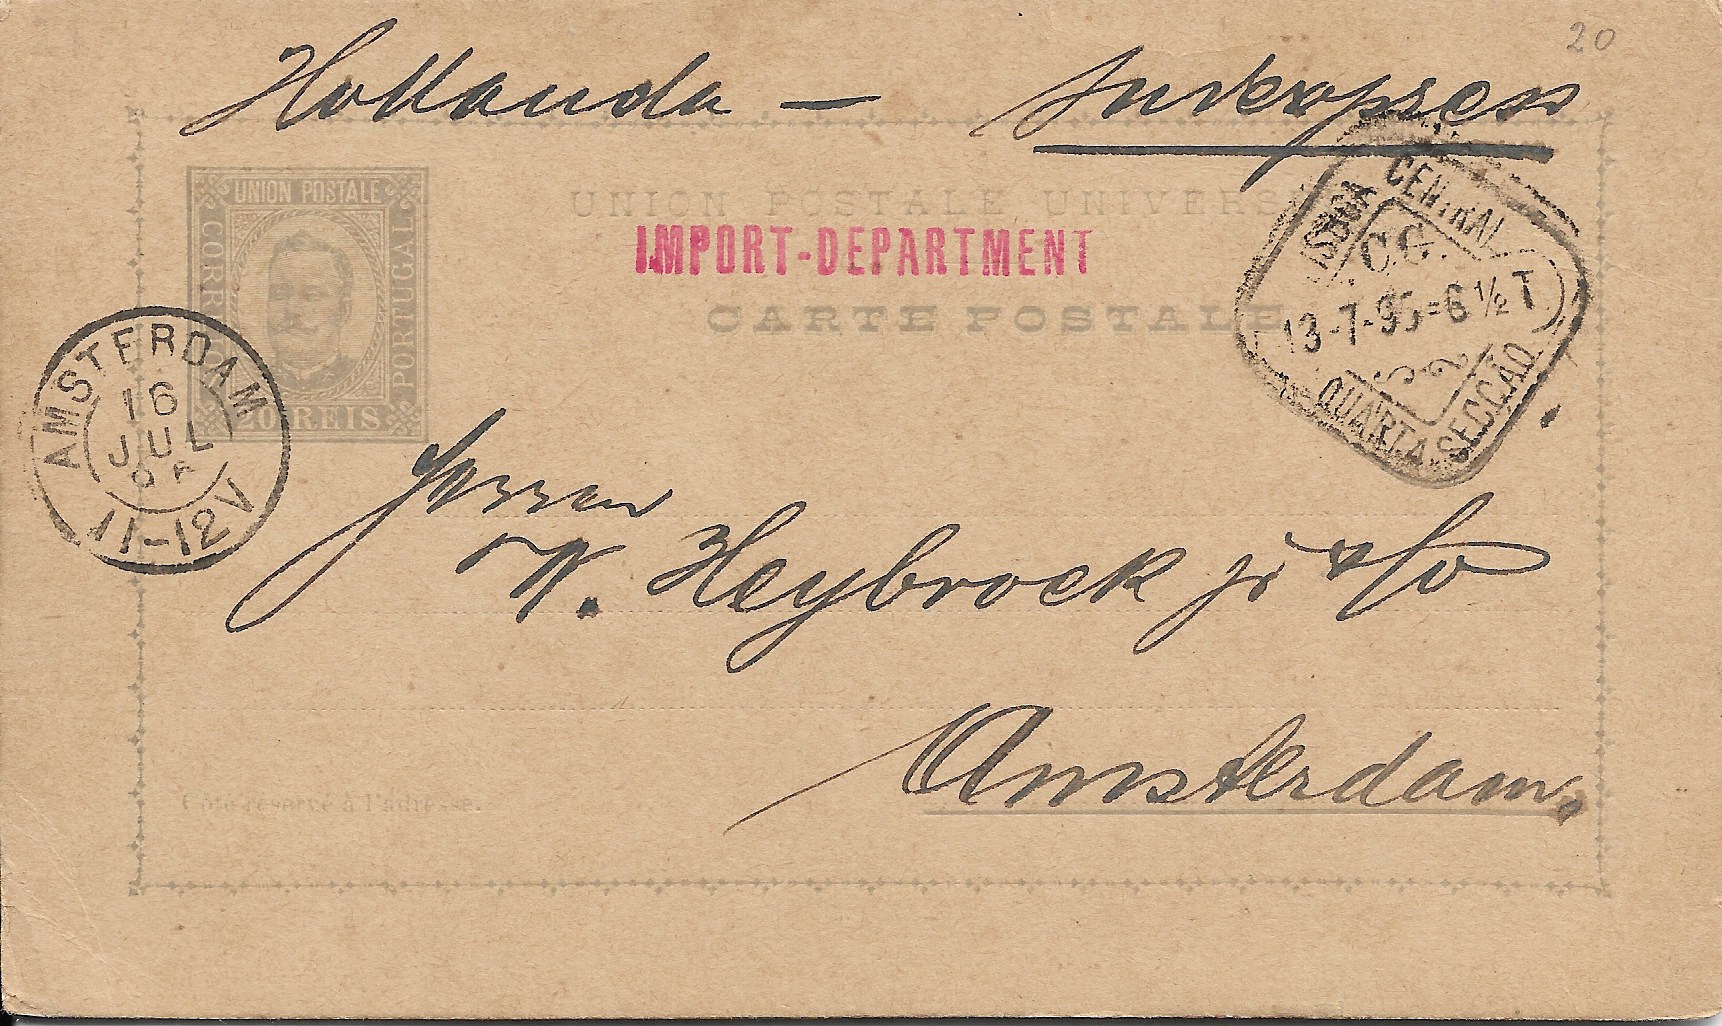 20
Hollanda — Sudexpress
UNION POSTALE UNIVERS
UNION POSTALE
CORREIO
PORTUGAL
20 REIS
IMPORT-DEPARTMENT
CARTE POSTALE
LISBOA CENTRAL
C.G.
13-7-95=6 ½ T
QUARTA SECÇÃO
AMSTERDAM
16
JUL
95
11-12V
Herren
W. Heybroek jr & Co
Amsterdam.
Coté réservé à l'adresse.